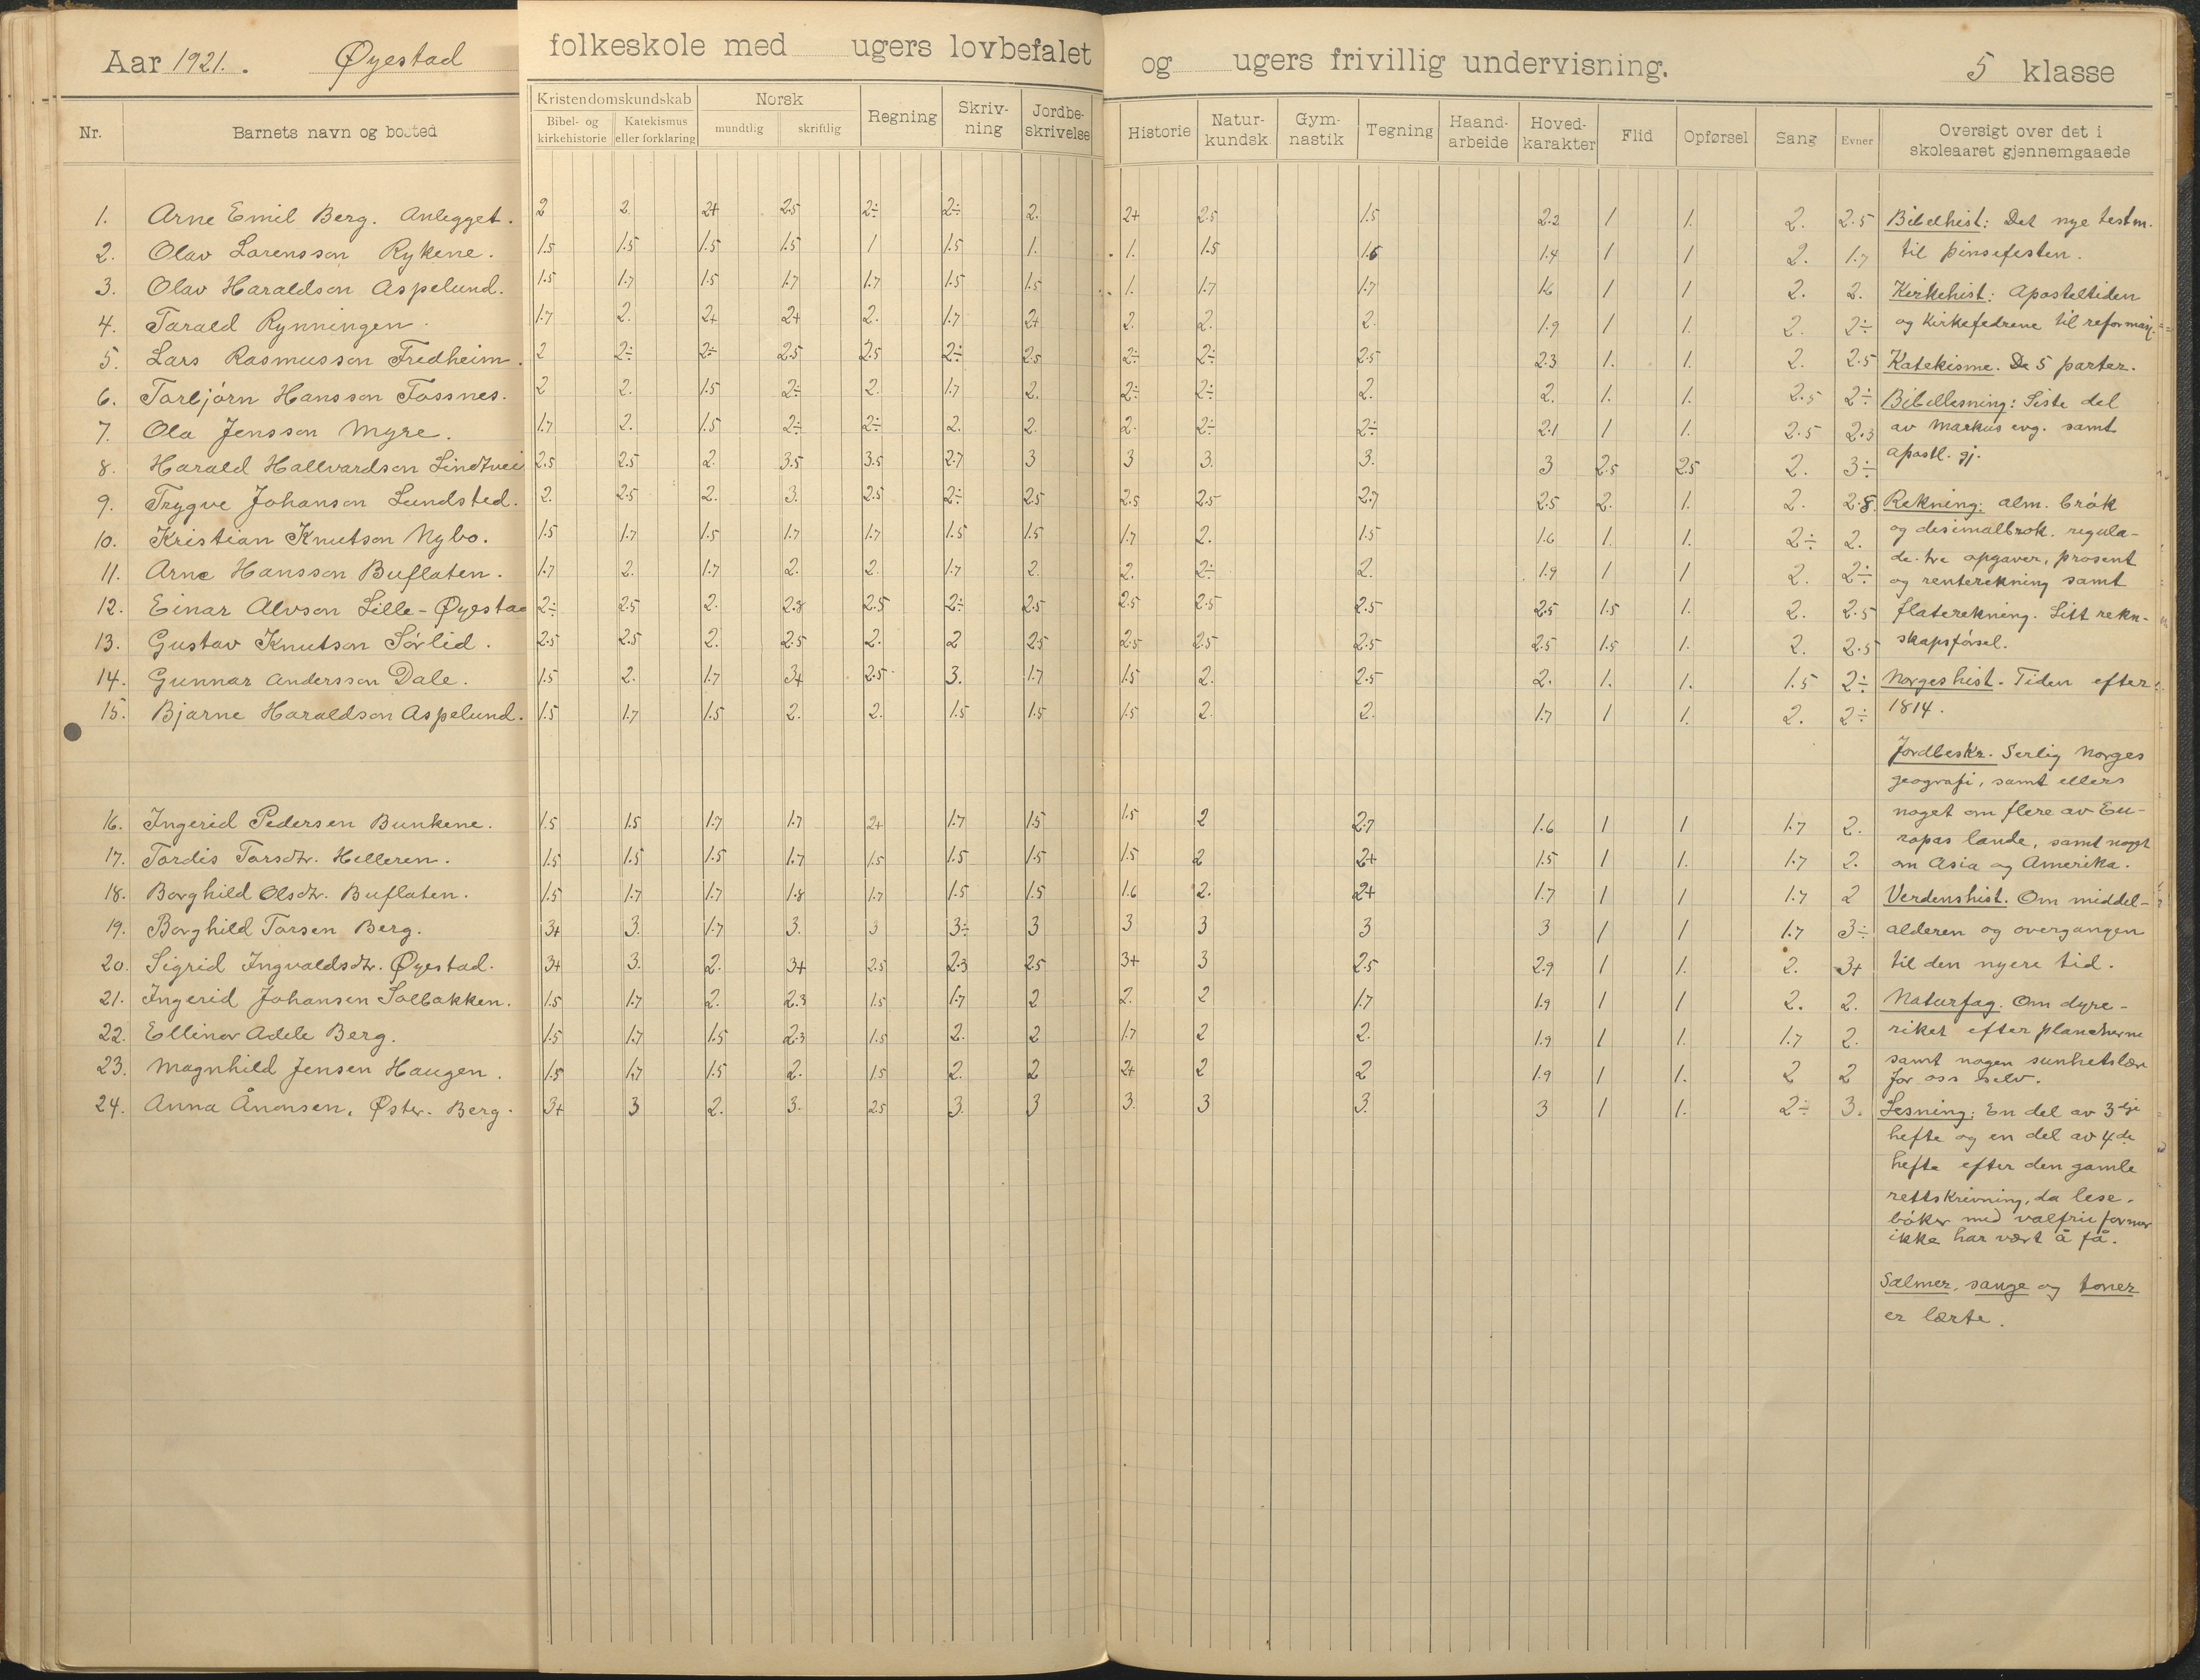 Aar 1921. Øyestad folkeskole med ugers lovbefalet og ugers frivillig undervisning. 5 klasse
Nr. Barnets navn og bosted Kristendomskundskab Bibel- og kirkehistorie Katekismus eller forklaring Norsk mundtlig skriftlig Regning Skriv-ning Jordbe-skrivelse Historie Natur-kundsk Gym-nastik Tegning Haand-arbeide Hoved-karakter Flid Opførsel Sang Evner Oversigt over det i skoleaaret gjennemgaaede
1. Arne Emil Berg. Anlegget. 2 2 2+ 2.5 2÷ 2÷ 2. 2+ 2.5 1.5 2.2 1 1. 2. 2.5
2. Olav Lorensson Rykene. 1.5 1.5 1.5 1.5 1 1.5 1. 1. 1.5 1.6 1.4 1 1 2. 1.7
3. Olav Haraldson Aspelund. 1.5 1.7 1.5 1.7 1.7 1.5 1.5 1. 1.7 1.7 1.6 1 1 2. 2.
4. Tarald Rynningen. 1.7 2. 2+ 2+ 2. 1.7 2+ 2. 2. 2. 1.9 1 1. 2. 2÷
5. Lars Rasmusson Fredheim. 2 2÷ 2÷ 2.5 2.5 2÷ 2.5 2÷ 2÷ 2.5 2.3 1. 1. 2. 2.5
6. Torbjørn Hansson Fossnes. 2 2. 1.5 2÷ 2. 1.7 2. 2÷ 2÷ 2. 2. 1. 1. 2.5 2÷
7. Ola Jensson Myre. 1.7 2. 1.5 2÷ 2÷ 2. 2. 2. 2÷ 2÷ 2.1 1 1. 2.5 2.3
8. Harald Hallvardson Lindtvei 2.5 2.5 2. 3.5 3.5 2.7 3 3 3. 3. 3 2.5 2.5 2. 3÷
9. Trygve Johanson Lundsted. 2. 2.5 2. 3. 2.5 2÷ 2.5 2.5 2.5 2.7 2.5 2. 1. 2. 2.8
10. Kristian Knutson Nybo. 1.5 1.7 1.5 1.7 1.7 1.5 1.5 1.7 2. 1.5 1.6 1. 1. 2÷ 2.
11. Arne Hansson Buflaten. 1.7 2. 1.7 2. 2. 1.7 2. 2. 2÷ 2. 1.9 1 1 2. 2÷
12. Einar Alvson Lille-Øyestad 2÷ 2.5 2. 2.8 2.5 2÷ 2.5 2.5 2.5 2.5 2.5 1.5 1. 2. 2.5
13. Gustav Knutson Sørlid. 2.5 2.5 2. 2.5 2. 2 2.5 2.5 2.5 2.5 2.5 1.5 1. 2. 2.5
14. Gunnar Andersson Dale. 1.5 2. 1.7 3+ 2.5 3. 1.7 1.5 2. 2.5 2. 1. 1. 1.5 2÷
15. Bjarne Haraldson Aspelund. 1.5 1.7 1.5 2. 2. 1.5 1.5 1.5 2. 2. 1.7 1 1. 2. 2÷
16. Ingerid Pedersen Bunkene. 1.5 1.5 1.7 1.7 2+ 1.7 1.5 1.5 2 2.7 1.6 1 1 1.7 2.
17. Tordis Torsdtr. Helleren. 1.5 1.5 1.5 1.7 1.5 1.5 1.5 1.5 2 2+ 1.5 1 1. 1.7 2.
18. Borghild Olsdtr. Buflaten. 1.5 1.7 1.7 1.8 1.7 1.5 1.5 1.6 2. 2+ 1.7 1 1 1.7 2
19. Borghild Torsen Berg. 3+ 3. 1.7 3. 3 3÷ 3 3 3 3 3 1 1 1.7 3÷
20. Sigrid Ingvaldsdtr. Øyestad. 3+ 3. 2. 3+ 2.5 2.3 2.5 3+ 3 2.5 2.9 1 1. 2. 3+
21. Ingerid Johansen Solbakken. 1.5 1.7 2. 2.3 1.5 1.7 2 2. 2 1.7 1.9 1 1 2. 2.
22. Ellinor Adele Berg. 1.5 1.7 1.5 2.3 1.5 2. 2 1.7 2 2. 1.9 1 1. 1.7 2.
23. Magnhild Jensen Haugen. 1.5 1.7 1.5 2. 1.5 2. 2 2+ 2 2 1.9 1 1. 2 2
24. Anna Ånonsen, Østr. Berg. 3+ 3 2. 3. 2.5 3. 3 3. 3 3. 3 1 1. 2÷ 3.
Bibelhist: Det nye testm.
til pinsefesten.
Kirkehist: Aposteltiden
og kirkefedrene til reformasj.
Katekisme. De 5 parter.
Bibellesning: Siste del
av Markus evg. samt
apostl. gj.
Rekning: alm. brøk
og desimalbrøk. regula-
de-tre opgaver, prosent
og renterekning samt
flaterekning. Litt rekn-
skapsførsel.
Norgeshist. Tiden efter
1814.
Jordbeskr. Serlig Norges
geografi, samt ellers
noget om flere av Eu-
ropas lande, samt noget
om Asia og Amerika.
Verdenshist. Om middel-
alderen og overgangen
til den nyere tid.
Naturfag. Om dyre-
riket efter plancherne
samt nogen sunhetslære
for oss selv.
Lesning: En del av 3dje
hefte og en del av 4de
hefte efter den gamle
rettskrivning, da lese-
bøker med valfrie former
ikke har vært å få.
Salmer, sange og toner
er lærte.